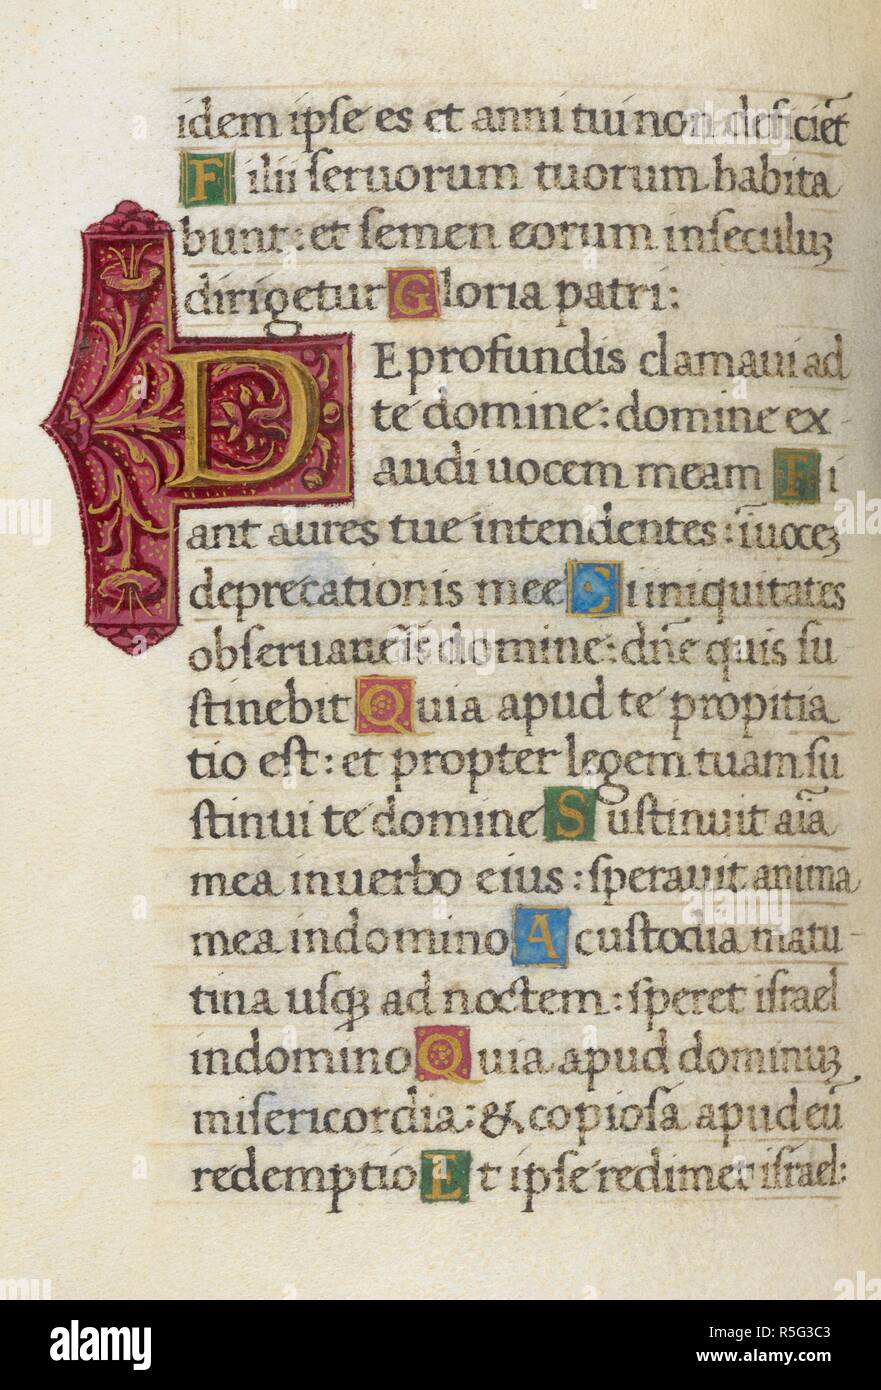 idem ipse es et anni tui non deficiēt
Filii seruorum tuorum habita
bunt: et semen eorum inseculuꝫ
dirigetur Gloria patri:
DE profundis clamaui ad
te domine: domine ex
audi uocem meam Fi
ant aures tue intendentes: ī uoceꝫ
deprecationis mee Si iniquitates
obseruaueris domine: dn̄e quis su
stinebit Quia apud te propitia
tio est: et propter legem tuam su
stinui te domine Sustinuit aīa
mea in uerbo eius: sperauit anima
mea in domino A custodia matu
tina usqꝫ ad noctem: speret israel
in domino Quia apud dominuꝫ
misericordia: & copiosa apud eū
redemptio Et ipse redimet israel:
alamy
Image ID: R5G3C3
www.alamy.com